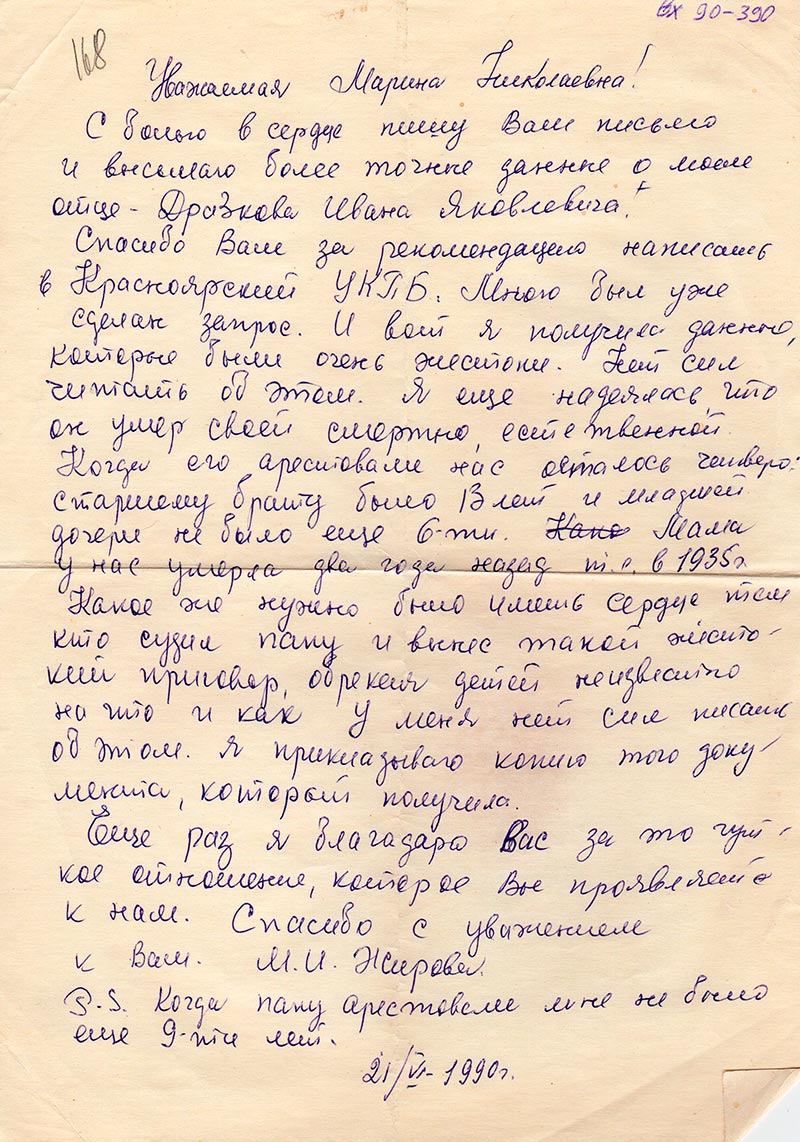 вх 90-390
168
Уважаемая Марина Николаевна!
С болью в сердце пишу Вам письмо
и высылаю более точные данные о моем
отце - Дразкова Ивана Яковлевича!
Спасибо Вам за рекомендацию написать
в Красноярский УКГБ. Мною был уже
сделан запрос. И вот я получила данные,
которые были очень жестоки. Нет сил
читать об этом. Я еще надеялась, что
он умер своей смертью, естественной.
Когда его арестовали нас осталось четверо:
старшему брату было 13 лет и младшей
дочери не было еще 6-ти. Како Мама
у нас умерла два года назад т.е. в 1935г
Какое же нужно было иметь сердце тем
кто судил папу и вынес такой жесто-
кий приговор, обрекая детей неизвестно
на что и как У меня нет сил писать
об этом. Я прикладываю копию того доку-
мента, который получила.
Еще раз я благодарю Вас за это чут-
кое отношение, которое Вы проявляете
к нам. Спасибо с уважением
к Вам. М.И. Жирова.
P.S. Когда папу арестовали мне не было
еще 9-ти лет.
21/VI-1990г.